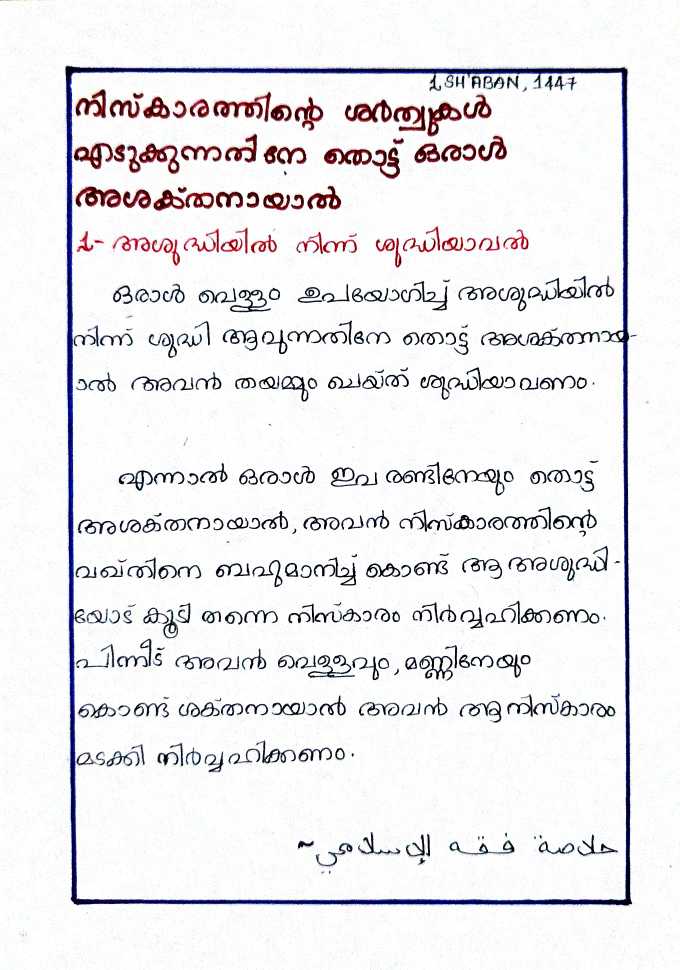 1 SH'ABAN, 1447
നിസ്കാരത്തിന്റെ ശർത്വുകൾ
എടുക്കുന്നതിനേ തൊട്ട് ഒരാൾ
അശക്തനായാൽ
1- അശുദ്ധിയിൽ നിന്ന് ശുദ്ധിയാവൽ
ഒരാൾ വെള്ളം ഉപയോഗിച്ച് അശുദ്ധിയിൽ
നിന്ന് ശുദ്ധി ആവുന്നതിനേ തൊട്ട് അശക്തനായ-
ാൽ അവൻ തയമ്മും ചെയ്ത് ശുദ്ധിയാവണം.
എന്നാൽ ഒരാൾ ഇവ രണ്ടിനേയും തൊട്ട്
അശക്തനായാൽ, അവൻ നിസ്കാരത്തിന്റെ
വഖ്തിനെ ബഹുമാനിച്ച് കൊണ്ട് ആ അശുദ്ധി-
യോട് കൂടി തന്നെ നിസ്കാരം നിർവ്വഹിക്കണം.
പിന്നീട് അവൻ വെള്ളവും, മണ്ണിനേയും
കൊണ്ട് ശക്തനായാൽ അവൻ ആ നിസ്കാരം
മടക്കി നിർവ്വഹിക്കണം.
خلاصة فقه الإسلامي~